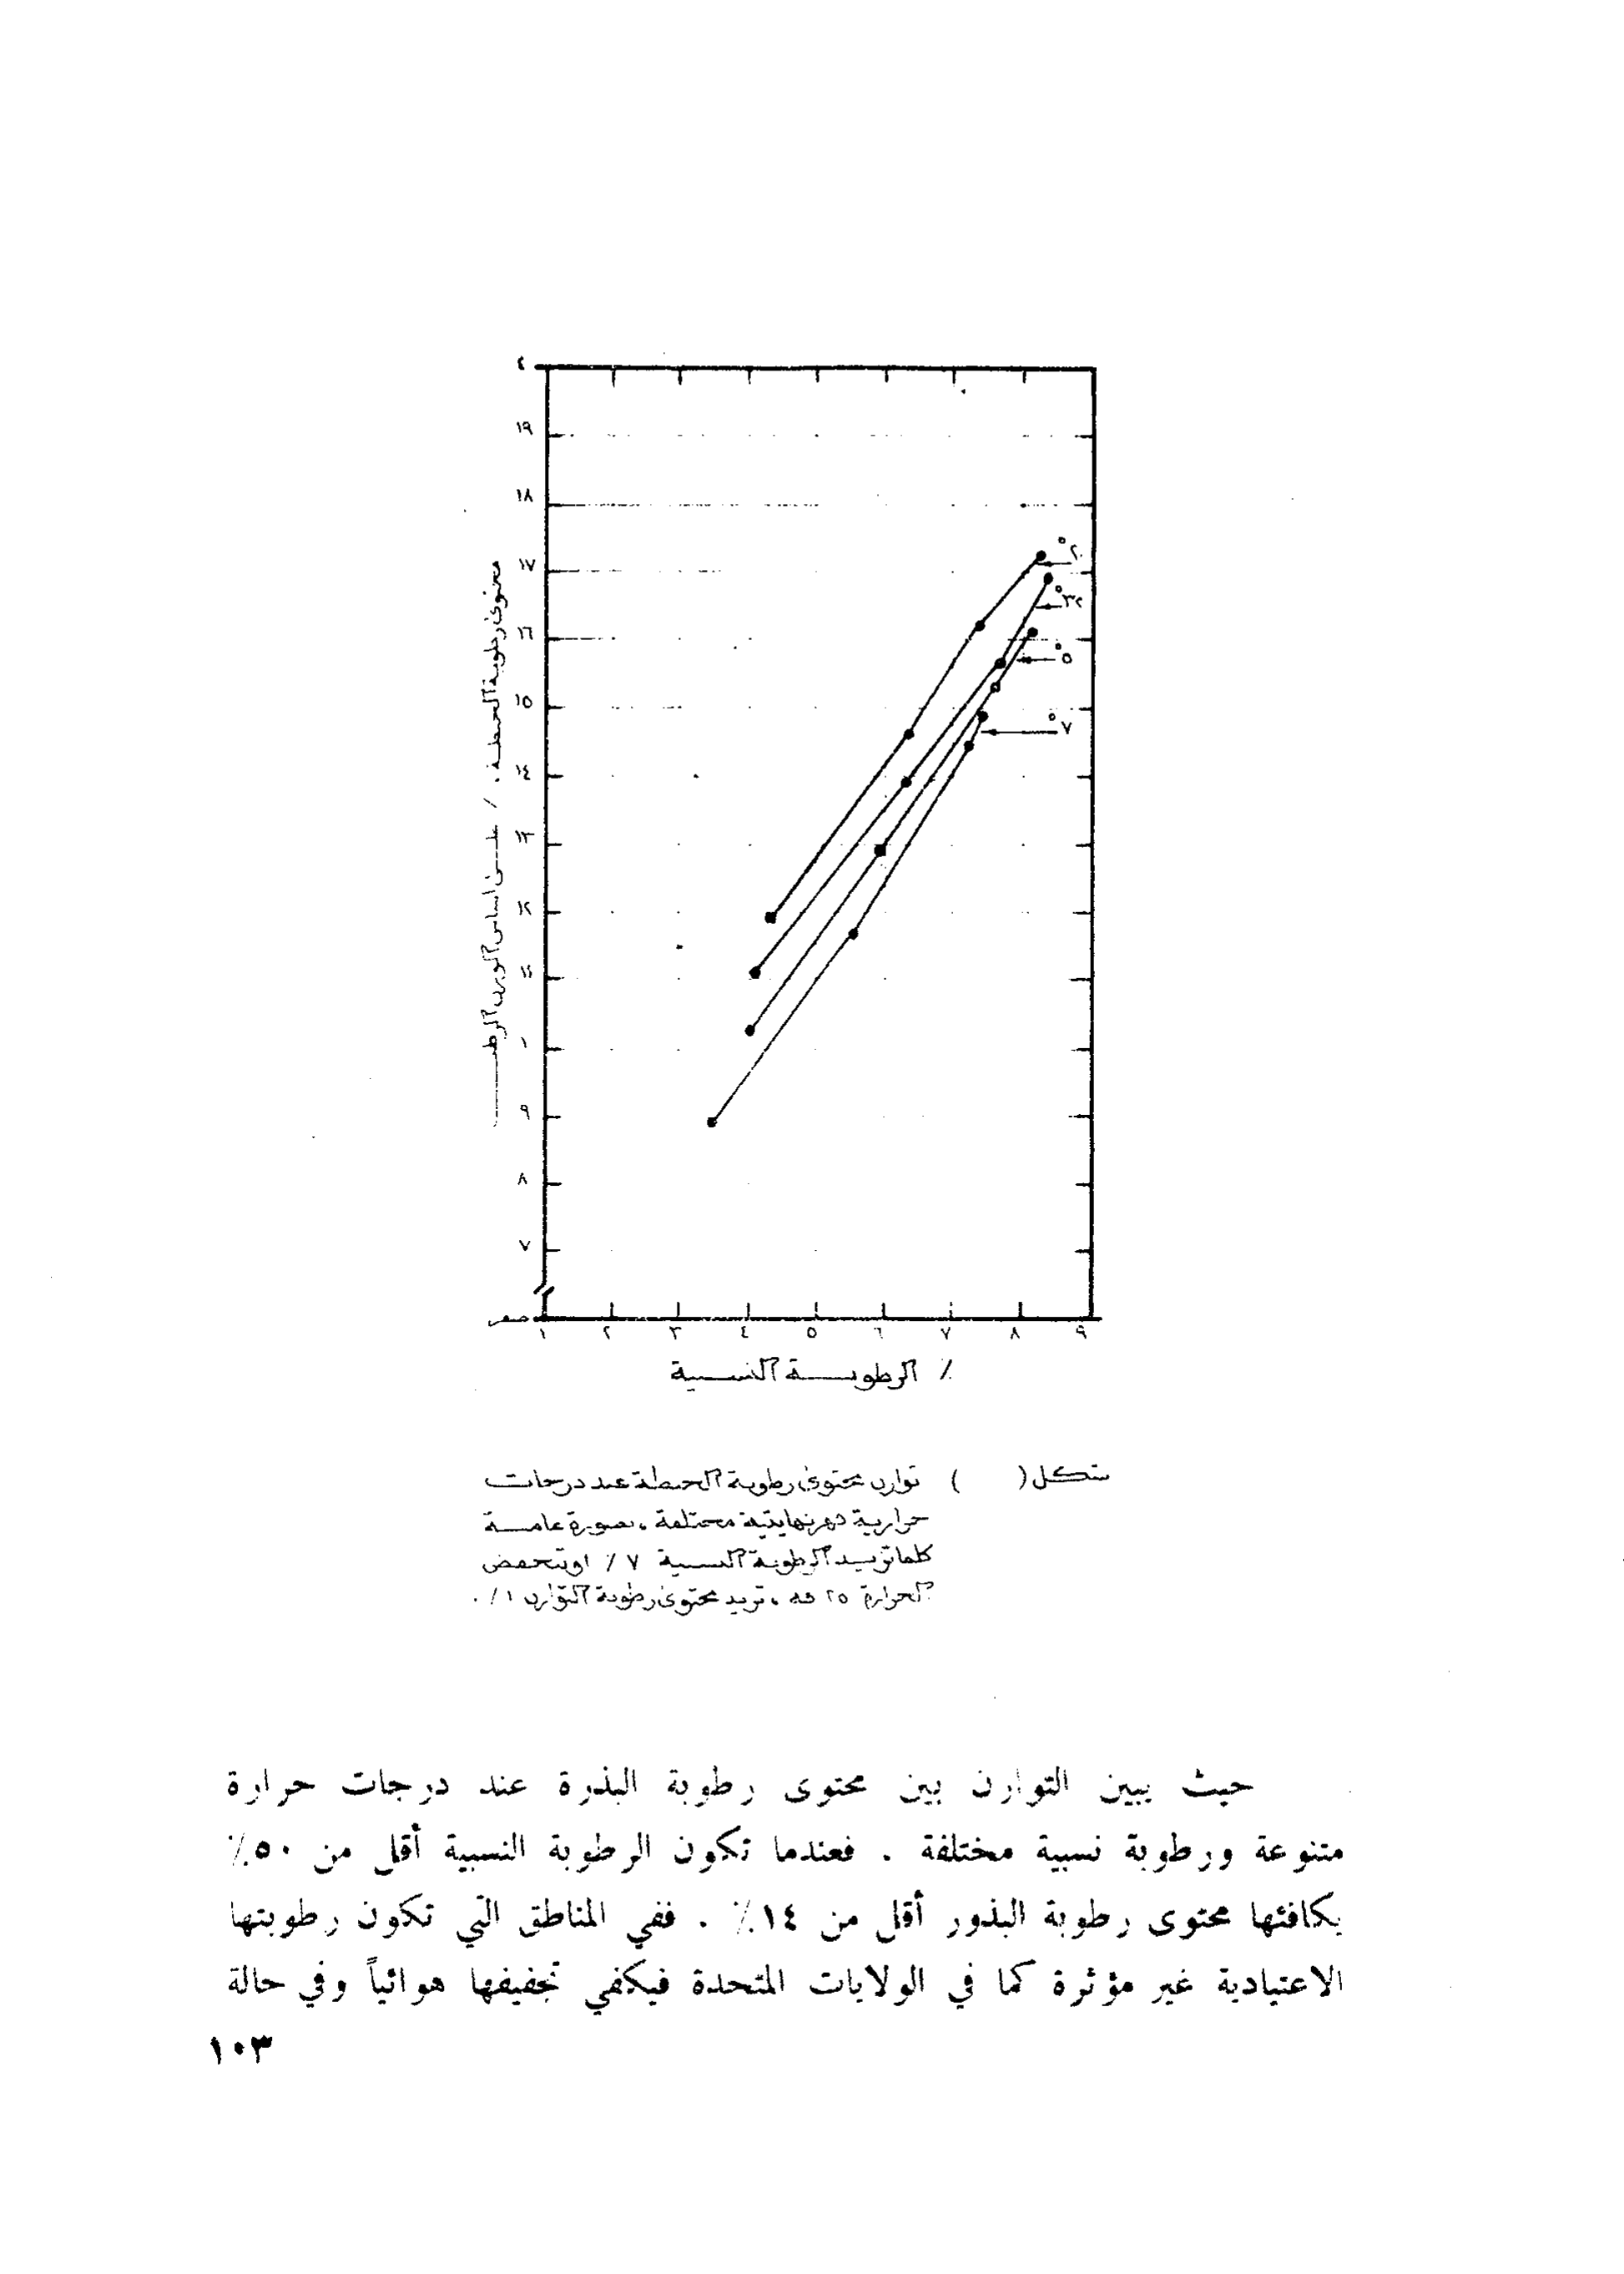 ٤
١٩
١٨
١٧
١٦
١٥
١٤
١٣
١٢
١١
١
٩
٨
٧
صفر
محتوى رطوبة الحنطة ، / على اساس الوزن الرطب
°٢٠
°٣٢
°٥
°٧
١ ٢ ٣ ٤ ٥ ٦ ٧ ٨ ٩
٪ الرطوبة النسبية
شكل ( ) توازن محتوى رطوبة الحنطة عند درجات
حرارية فهرنهايتية مختلفة ، بصورة عامة
كلما تزيد الرطوبة النسبية ٧ ٪ او تنخفض
الحرارة ٢٥ فه ، تزيد محتوى رطوبة التوازن ١ ٪ .
حيث يبين التوازن بين محتوى رطوبة البذرة عند درجات حرارة
متنوعة ورطوبة نسبية مختلفة . فعندما تكون الرطوبة النسبية أقل من ٥٠٪
يكافئها محتوى رطوبة البذور أقل من ١٤٪ . ففي المناطق التي تكون رطوبتها
الاعتيادية غير مؤثرة كما في الولايات المتحدة فيكفي تجفيفها هوائياً وفي حالة
١٠٣